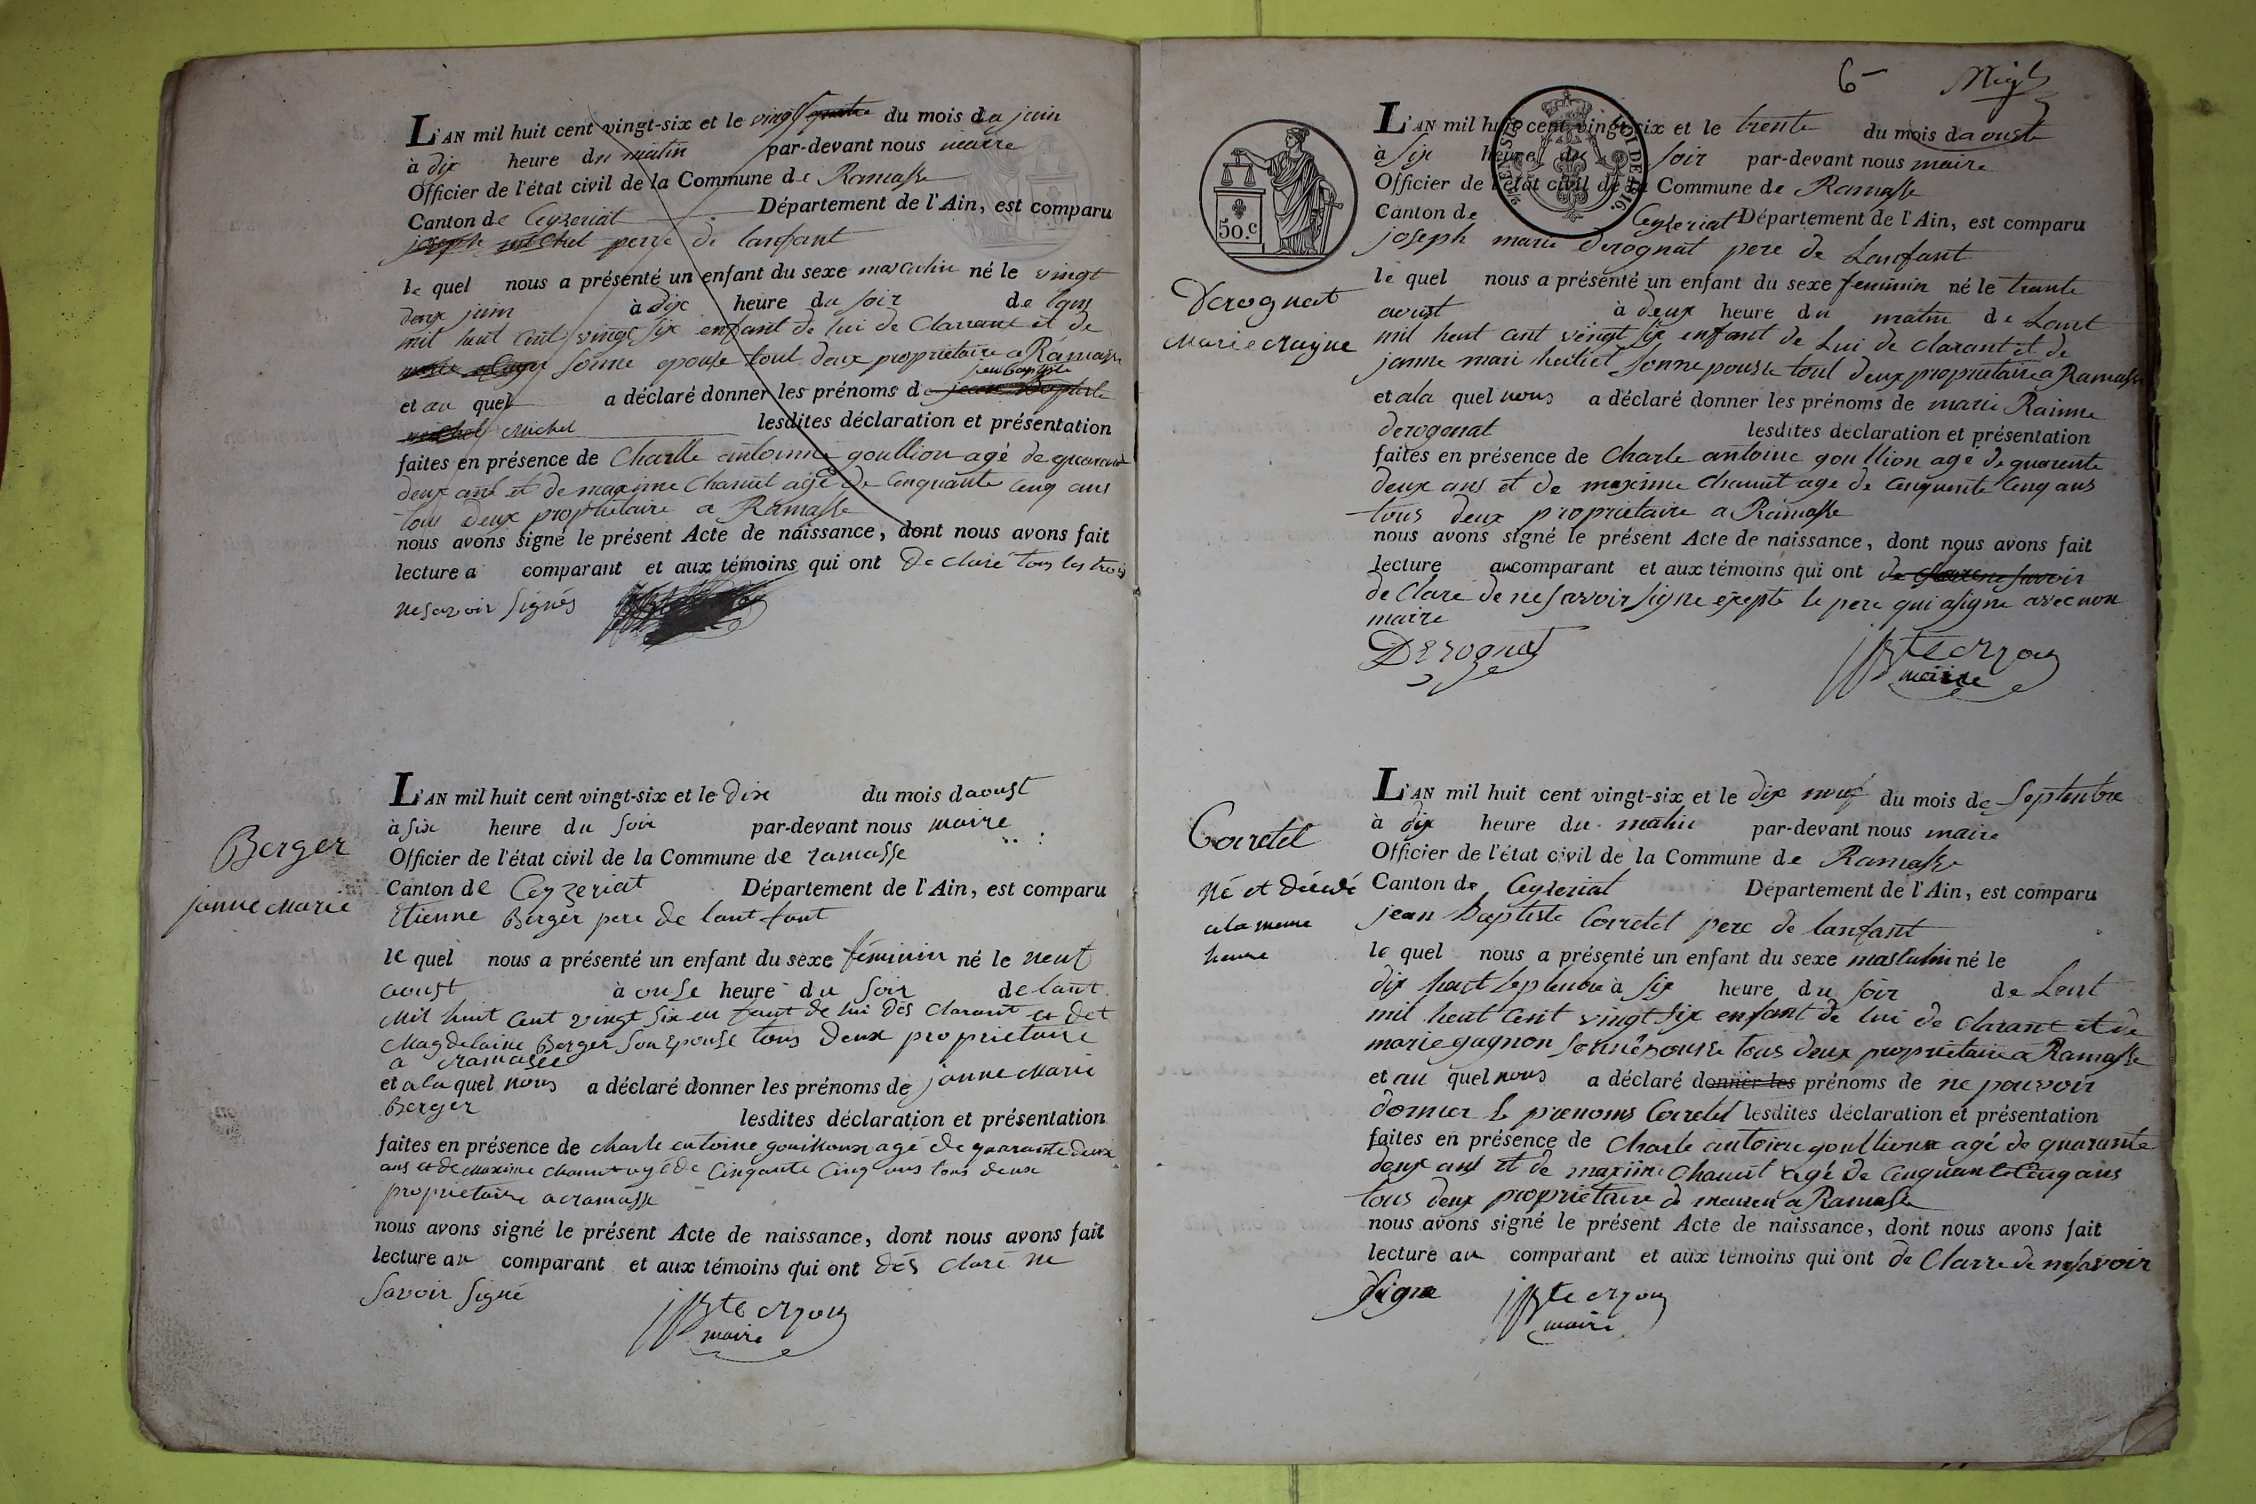 L'AN mil huit cent vingt-six et le vingt quatre du mois de juin
à dix heure du matin par-devant nous maire
Officier de l'état civil de la Commune de Ramasse
Canton de Ceyzeriat Département de l'Ain, est comparu
joseph michel perre de lanfant
le quel nous a présenté un enfant du sexe masculin né le vingt
deux juin à dix heure du soir de lans
mil huit cent vingt six enfant de lui de Clarrant et de
sonne epouse tout deux proprietaire a Ramasse
jen baptiste
et au quel a déclaré donner les prénoms de jean Baptiste
michel Michel lesdites déclaration et présentation
faites en présence de Charlle antoinne goullion agé de quarant
deux ans et de maxime Chanut agé de Cinquante Cinq ans
tous deux proprietaire a Ramasse
nous avons signé le présent Acte de naissance, dont nous avons fait
lecture a comparant et aux témoins qui ont de claré tous les trois
ne savoir Signés
Berger
janne Marie
L'AN mil huit cent vingt-six et le dix du mois daoust
à six heure du soir par-devant nous maire
Officier de l'état civil de la Commune de ramasse
Canton de Ceyzeriat Département de l'Ain, est comparu
Etienne Berger pere de lant fant
le quel nous a présenté un enfant du sexe féminin né le neuf
aoust à onse heure du soir de lant
Mil huit Cent vingt Six en fant de lui dés Clarant et det
Magdelaine Berger Son Epouse tous Deux proprietaire
a ramasse
et a la quel nous a déclaré donner les prénoms de janne Marie
Berger lesdites déclaration et présentation
faites en présence de charle entoine gouilloux agé de quarante deux
ans et de Maxime chanut agé de Cinqante Cinq ans tous deux
proprietaire a ramasse
nous avons signé le présent Acte de naissance, dont nous avons fait
lecture au comparant et aux témoins qui ont dés claré ne
Savoir Signé
maire
6
50.c
LOI DE 1816.
Derognat
Marie
L'AN mil huit cent vingt-six et le trente du mois daouste
à Six heure du soir par-devant nous maire
Officier de l'état civil de la Commune de Ramasse
Canton de Ceyzeriat Département de l'Ain, est comparu
joseph marie Derognat pere de Lanfant
le quel nous a présenté un enfant du sexe feminin né le trante
aoust à deux heure du matin de Lant
mil heut cent vingt six enfant de Lui de clarant et de
janne mari sonnepouse tout deux proprietaire a Ramasse
et ala quel nous a déclaré donner les prénoms de marie Rainne
derogonat lesdites déclaration et présentation
faites en présence de Charle antoine goullion agé de quarente
deux ans et de maxime Chanut age de Cenquente Cenq ans
tous deux proprietaire a Ramasse
nous avons signé le présent Acte de naissance, dont nous avons fait
lecture au comparant et aux témoins qui ont de Clarene savoir
de Claré de ne savoir signe exepte le pere qui a signe avec nou
maire
Derognat
maire
Corretel
né et décédé
a la meme
heure
L'AN mil huit cent vingt-six et le dix neuf du mois de Septenbre
à dix heure du matin par-devant nous maire
Officier de l'état civil de la Commune de Ramasse
Canton de Ceyzeriat Département de l'Ain, est comparu
jean baptiste Corretel pere de lanfant
le quel nous a présenté un enfant du sexe masculin né le
dix huit septenbre à six heure du soir de Lent
mil heut Cent vingt six enfant de lui de clarant et de
marie gagnon sonnépouse tous deux proprietaire a Ramasse
et au quel nous a déclaré donner les prénoms de ne pouvoir
donner le prenoms Corretel lesdites déclaration et présentation
faites en présence de Charle antoine goullioux agé de quarante
deux ans et de maxime Chanut agé de Cenquante Cenq ans
tous deux proprietaire de meuren a Ramasse
nous avons signé le présent Acte de naissance, dont nous avons fait
lecture au comparant et aux témoins qui ont de Clarre de ne savoir
signe
maire